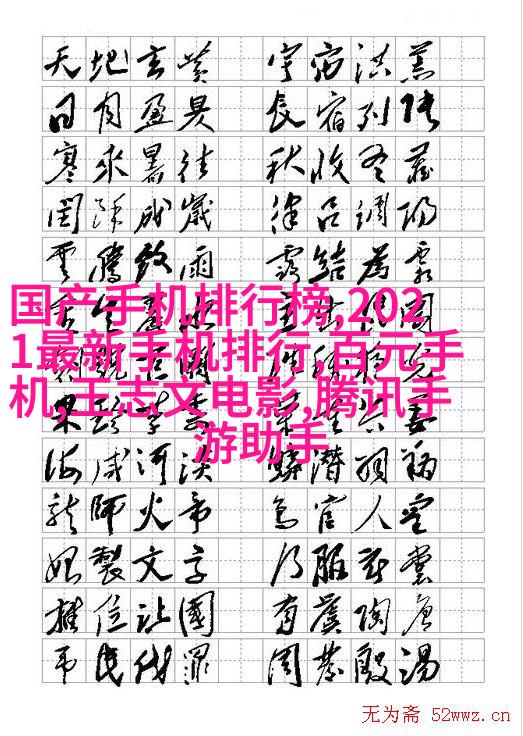 天地玄黄 宇宙洪荒
日月盈昃 辰宿列張
寒來暑往 秋收冬藏
閏餘成歲 律呂調陽
雲騰致雨 露結為霜
国产手机排行榜,202
1最新手机排行,百元手
机,王志文电影,腾讯手
游助手
海鹹河淡 鱗潛羽翔
龍師火帝 鳥官人皇
始製文字 乃服衣裳
推位讓國 有虞陶唐
弔民伐罪 周發殷湯
无为斋 52wwz.cn